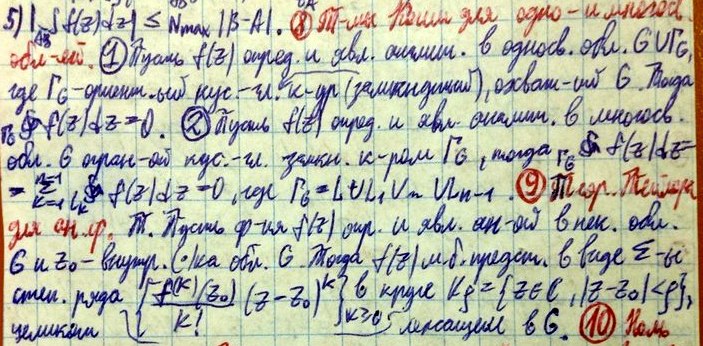 5) |∫_{AB} f(z)dz| ≤ N_max |B-A|. ⑧ Т-мы Коши для одно- и многосв.
обл-ей. ① Пусть f(z) опред. и явл. аналит. в односв. обл. G∪Γ_G,
где Γ_G - ориент-ый кус.-гл. к-ур (замкнутый), охват-ий G. Тогда
_{Γ_G}∮ f(z)dz=0. ② Пусть f(z) опред. и явл. аналит. в многосв.
обл. G огран-ой кус.-гл. замкн. к-ром Γ_G, тогда _{Γ_G}∮ f(z)dz=
= Σ_{k=1}^{n-1} _{L_k}∮ f(z)dz=0, где Γ_G = L∪L_1∪…∪L_{n-1}. ⑨ Теор. Тейлора
для ан. ф. Т. Пусть ф-ия f(z) опр. и явл. ан-ой в нек. обл.
G и z_0 - внутр. (·)ка обл. G. Тогда f(z) м.б. предст. в виде Σ-ы
степ. ряда {f^{(k)}(z_0)/k! (z-z_0)^k}_{k≥0} в круге K_ρ = {z∈ℂ, |z-z_0|<ρ},
целиком лежащем в G. ⑩